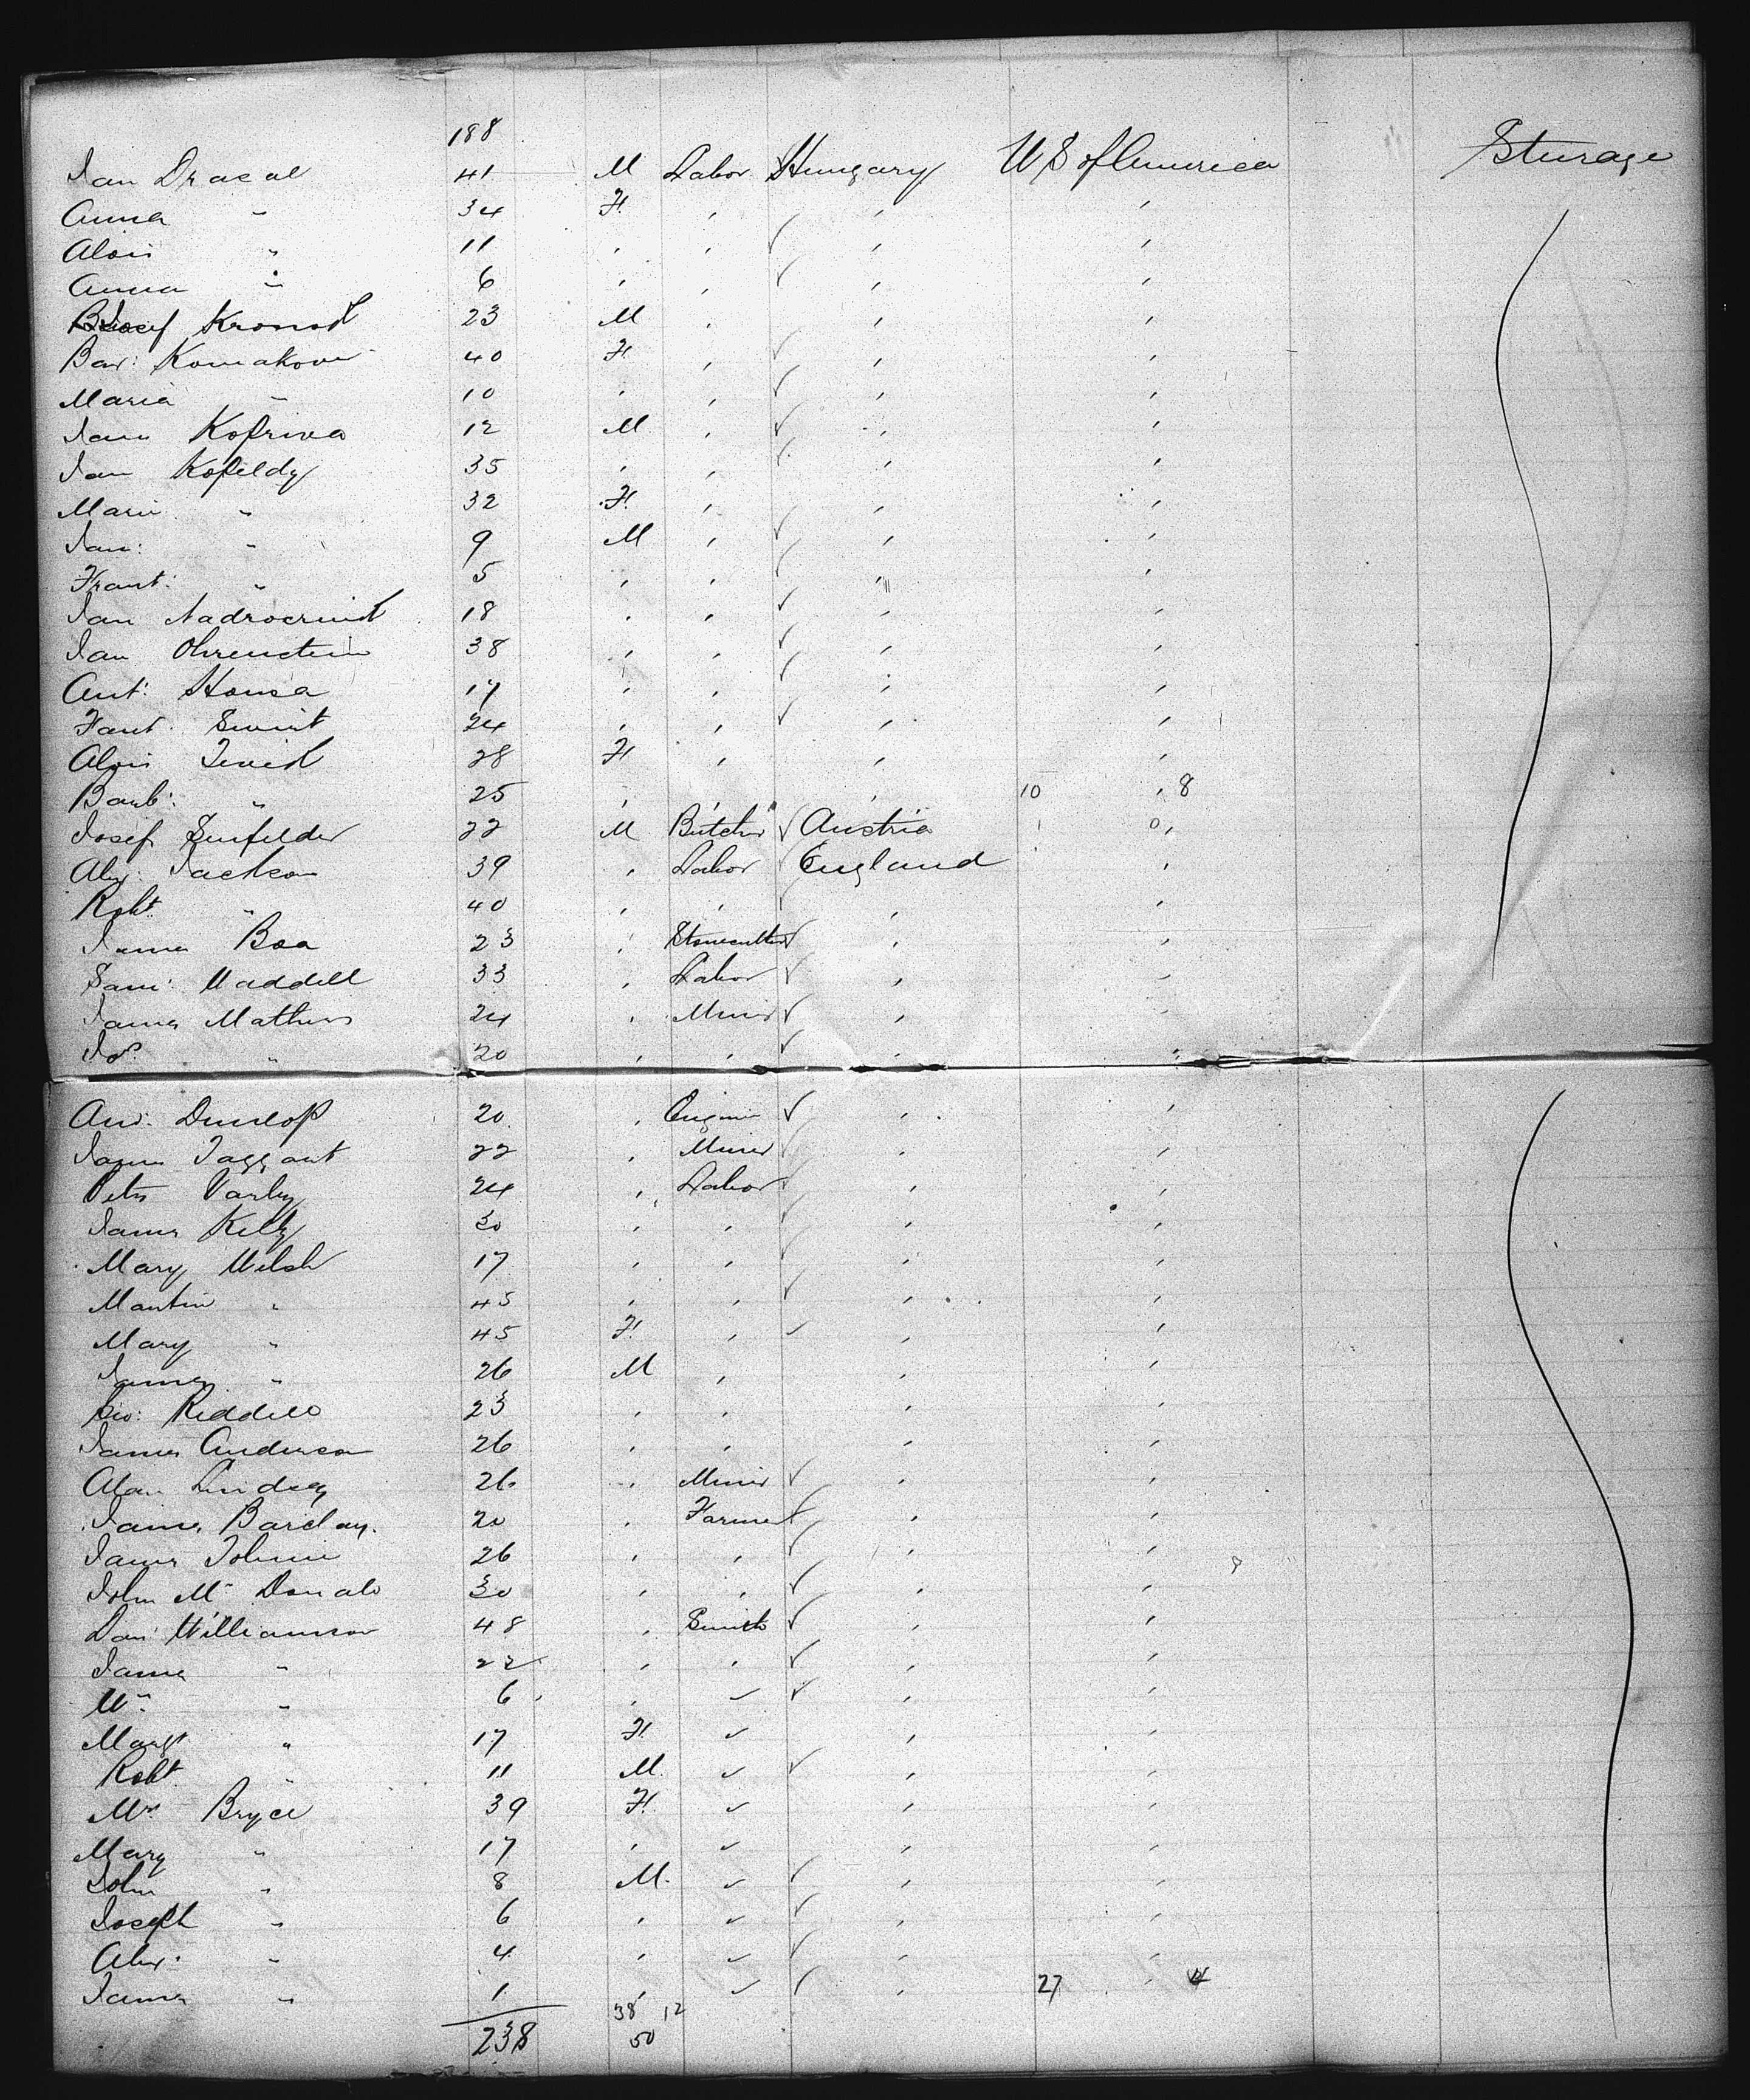 188
Jan Dracal 41 M Labor Hungary U S of America Steerage
Anna " 34 F. , , ,
Alois " 11 , , , ,
Anna " 6 , , , ,
Josef 23 M , , ,
Bar: 40 F. , , ,
Maria " 10 , , , ,
Jan Kofriva 12 M , , ,
Jan Kofeldy 35 , , , ,
Marie " 32 F. , , ,
Jan: " 9 M , , ,
Frant: " 5 , , , ,
Jan 18 , , , ,
Jan Ohrenstein 38 , , , ,
Ant: Housa 17 , , , ,
24 , , , ,
Alois 28 F. , , ,
Barb: " 25 , , , 10 , 8
Josef 22 M Butcher Austria ,
Alex: Jackson 39 , Labor England ,
Robt " 40 , , , ,
James Boa 23 , Stonecutter , ,
Sam: Waddell 33 , Labor , ,
James Mathers 24 , Miner , ,
Jos. " 20 , , , ,
And. Dunlop 20 , Engineer , ,
James Taggart 22 , Miner , ,
Peter Varley 24 , Labor , ,
James Kelly 30 , , , ,
Mary Welsh 17 , , , ,
Martin " 45 , , , ,
Mary " 45 F. , , ,
James " 26 M , , ,
Geo: Riddell 23 , , , ,
James Anderson 26 , , , ,
Alan Lindsay 26 , Miner , ,
James Barclay. 20 , Farmer , ,
James 26 , , , ,
John Mc Donald 30 , , , ,
Dan: Williamson 48 , Smith , ,
James " 22 , , , ,
Wm. " 6 , , ,
Margt " 17 F. , ,
Robt " 11 M. , ,
Mrs. Bryce 39 F. , ,
Mary " 17 , , ,
John " 8 M. , ,
Joseph " 6 , , ,
Alex. " 4 , , ,
James " 1 , , 27 ,
38 12
238 50